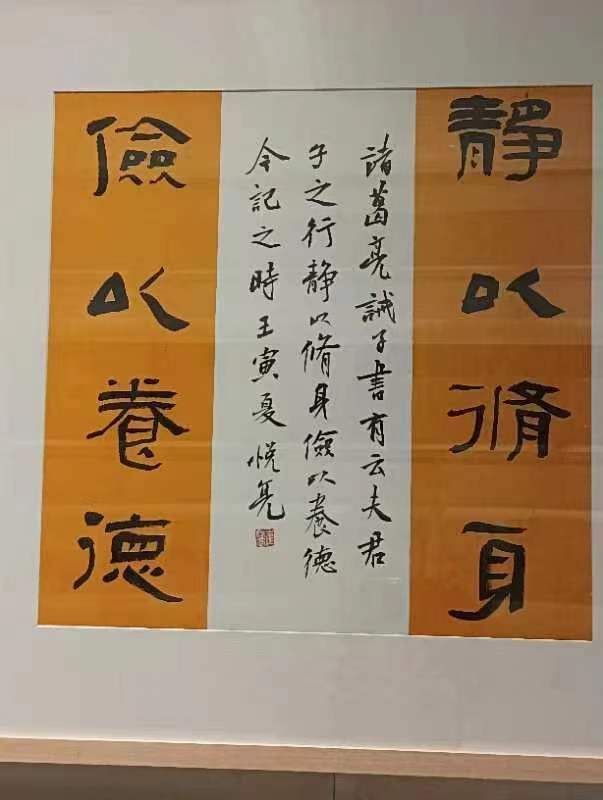 靜以脩身
諸葛亮誡子書有云夫君
子之行靜以脩身儉以養德
今記之時壬寅夏悦
儉以養德